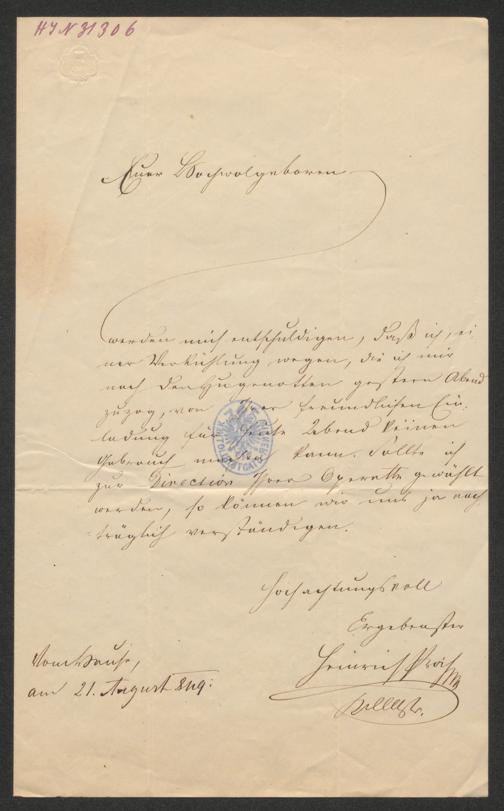 HIN 31306
Euer Hochwolgeboren
werden mich entschuldigen, daß ich, ei
ner Verkühlung wegen, die ich mir
nach den Hugenotten gestern Abend
zuzog, von Ihrer freundlichen Ein-
ladung für heute Abend keinen
Gebrauch machen kann. Sollte ich
zur Direction Ihrer Operette gewählt
werden, so können wir uns ja nach
träglich verständigen.
Hochachtungsvoll
Ergebenster
Heinrich Proch
Vom Hause,
am 21. August 849: